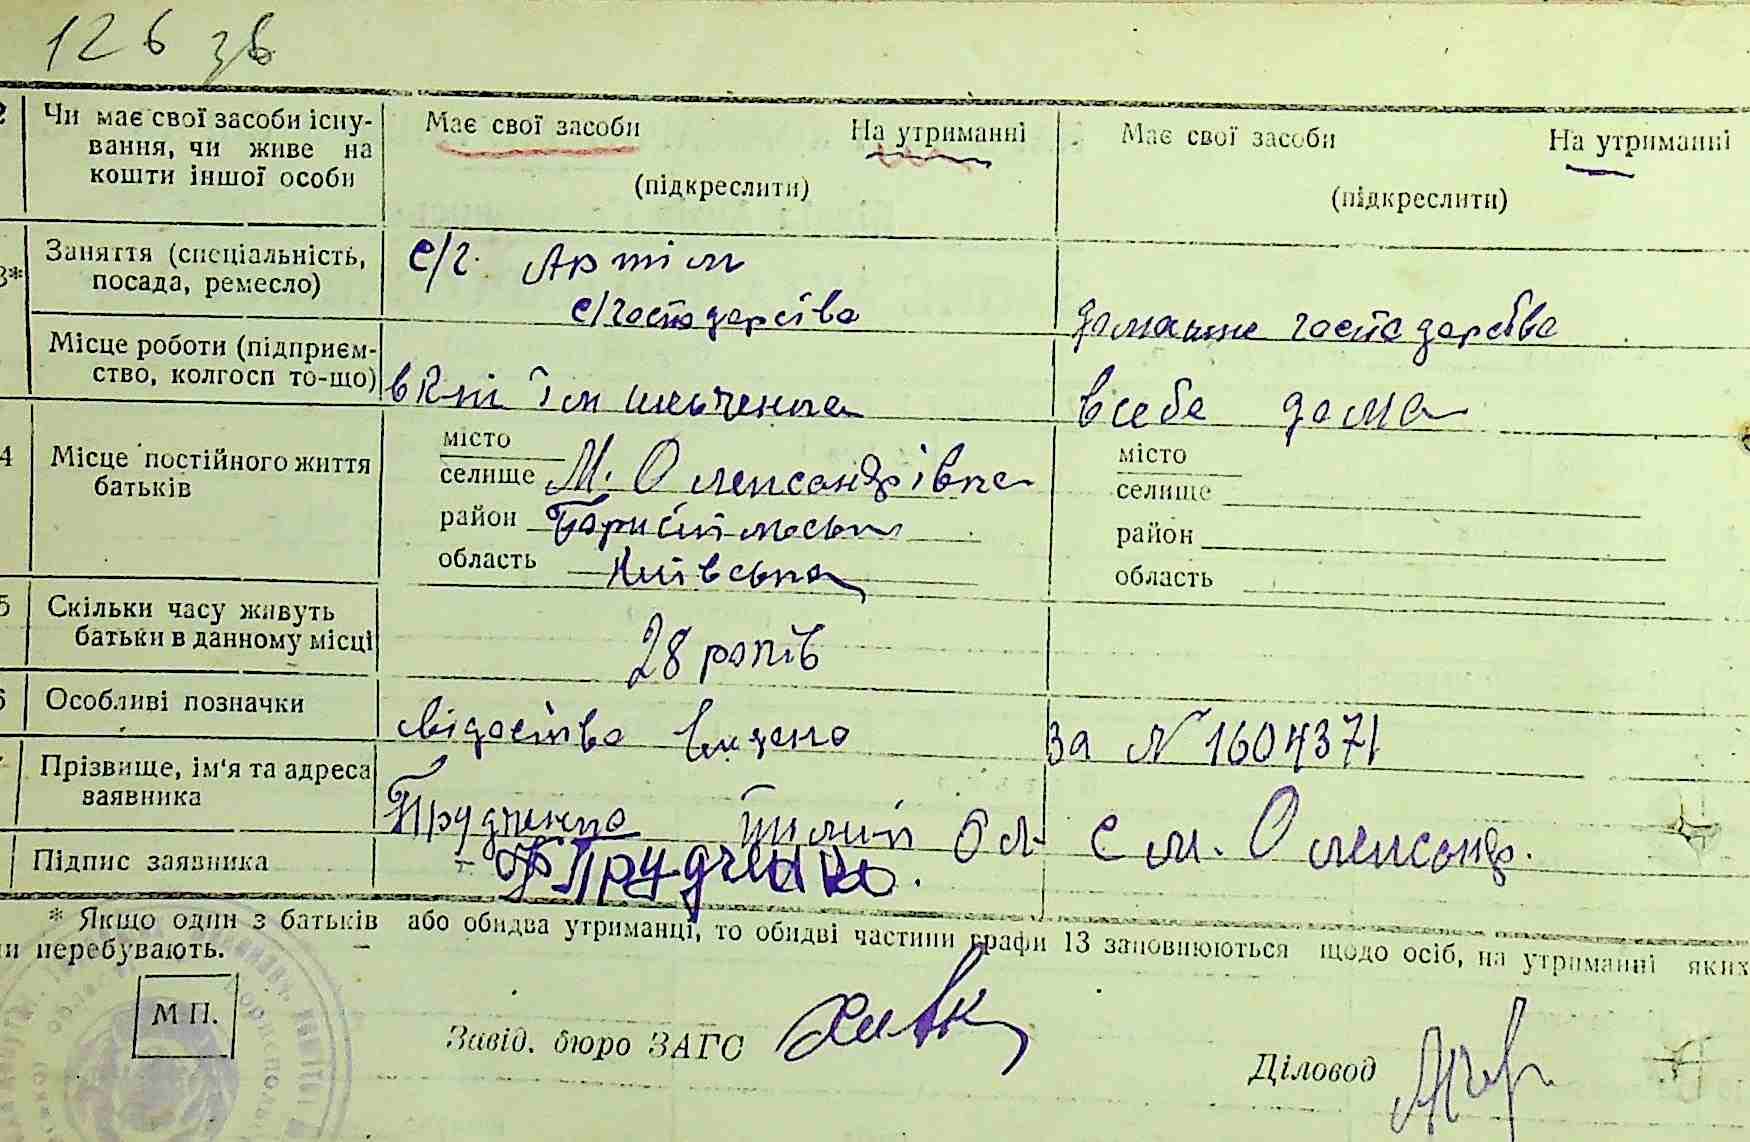 126 зв
2 Чи має свої засоби існу- Має свої засоби На утриманні Має свої засоби На утриманні
вання, чи живе на
кошти іншої особи (підкреслити) (підкреслити)
3* Заняття (спеціальність, с/г. Артіл
посада, ремесло) с/господарства домашне господарства
Місце роботи (підприєм-
ство, колгосп то-що) в к-пі ім шевченка в себе дома
4 Місце постійного життя
батьків
місто місто
селище М. Олександрівка селище
район Бориспільськ район
область Київська область
5 Скільки часу живуть
батьки в данному місці 28 років
6 Особливі позначки свідоство видано за N 1604371
Прізвище, ім'я та адреса
заявника Прудченко с м. Олександр.
Підпис заявника Прудченко.
* Якщо один з батьків або обидва утриманці, то обидві частини графи 13 заповнюються щодо осіб, на утриманні яких
ни перебувають.
М П.
Завід. бюро ЗАГС
Діловод